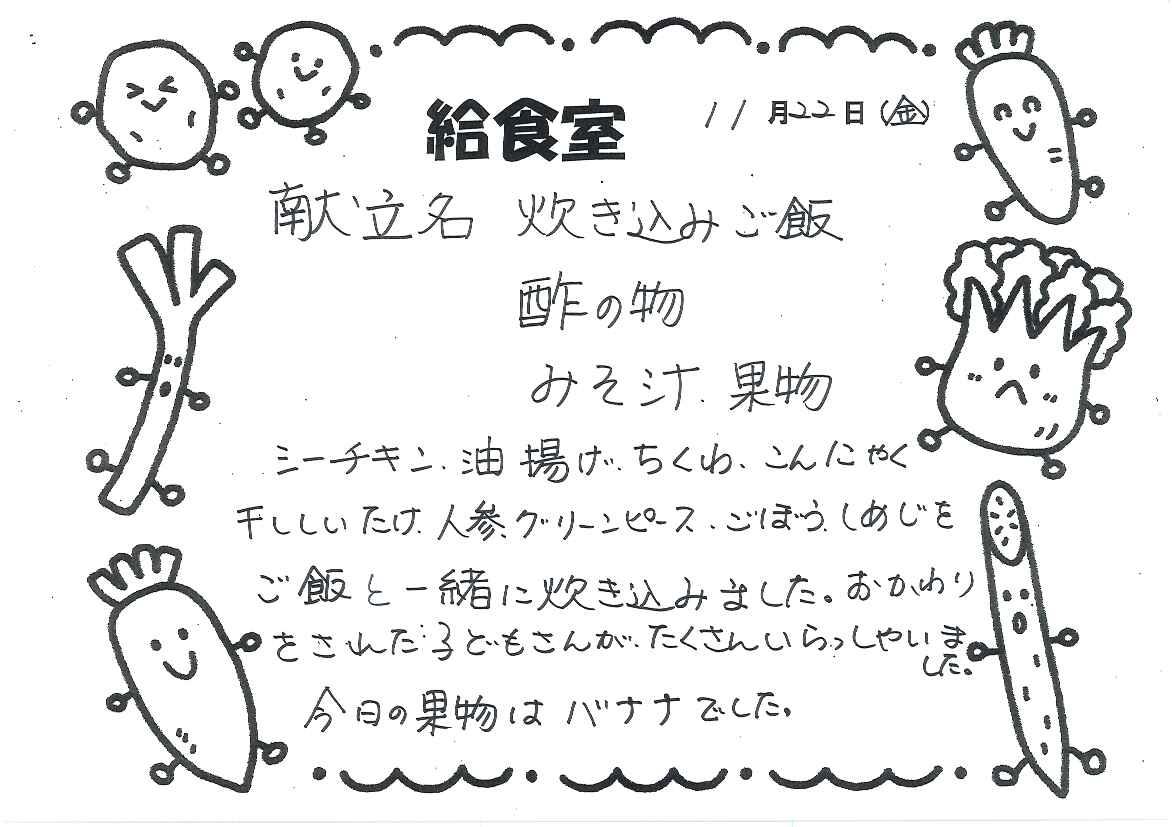 給食室 11月22日(金)
献立名 炊き込みご飯
酢の物
みそ汁、果物
シーチキン、油揚げ、ちくわ、こんにゃく
干ししいたけ、人参、グリーンピース、ごぼう、しめじを
ご飯と一緒に炊き込みました。おかわり
をされた子どもさんが、たくさんいらっしゃいま
した。
今日の果物はバナナでした。